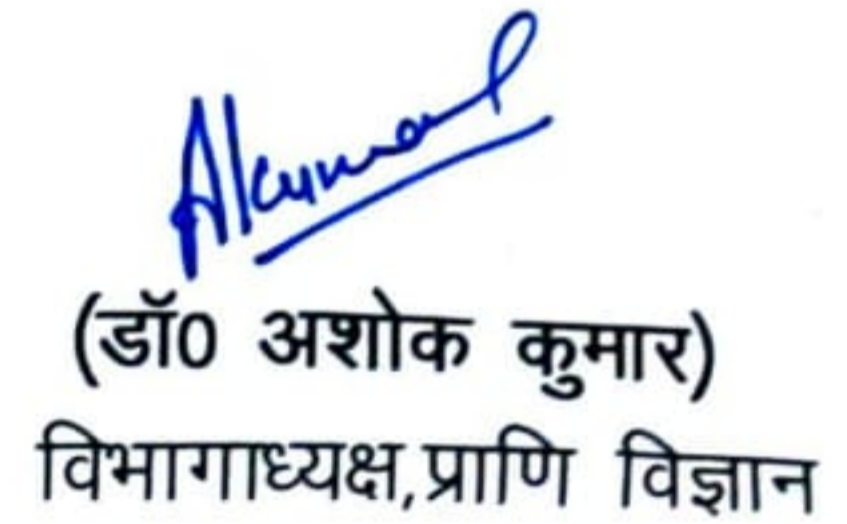 Akumar
(डॉ0 अशोक कुमार)
विभागाध्यक्ष,प्राणि विज्ञान